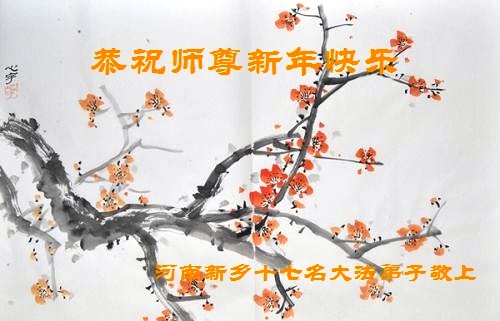 恭祝师尊新年快乐
河南新乡十七名大法弟子敬上